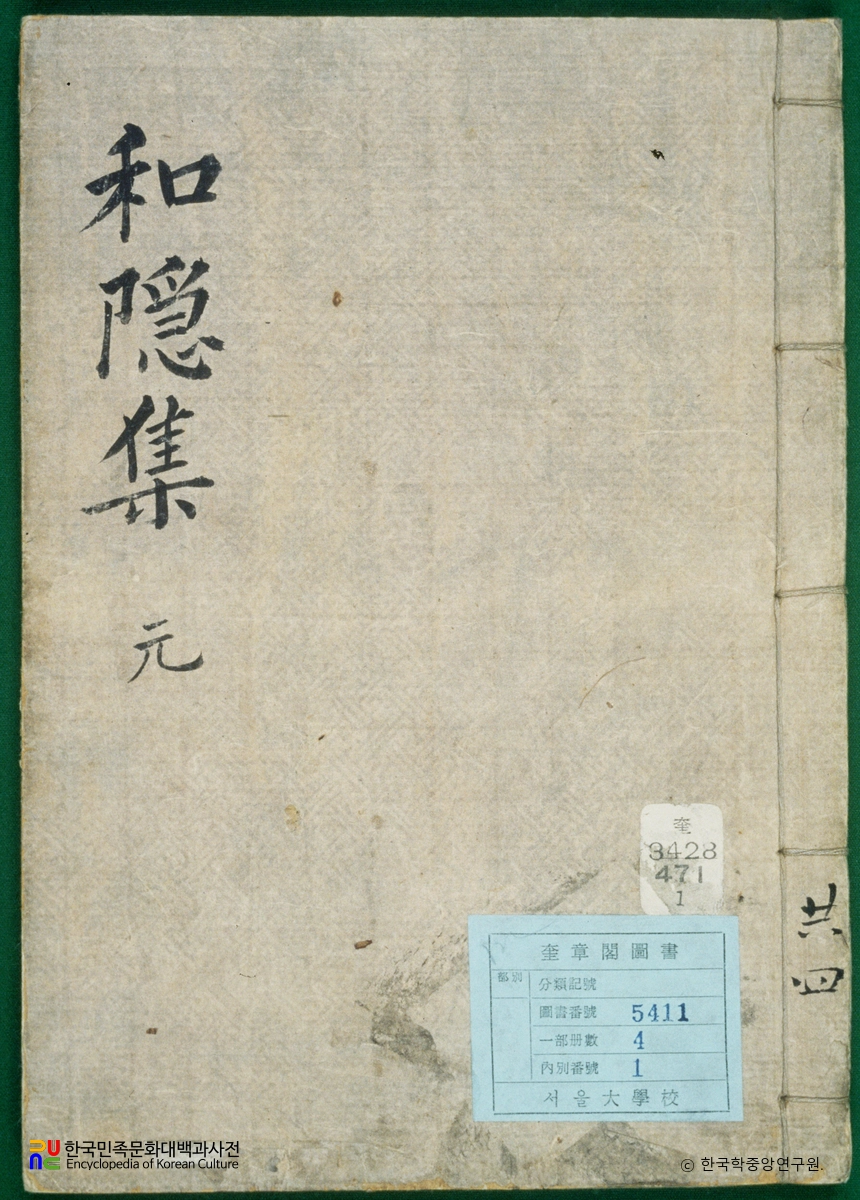 和隠集 元
共四
奎
3428
471
1
奎章閣圖書
部別
分類記號
圖書番號 5411
一部册數 4
內別番號 1
서울大學校
한국민족문화대백과사전
Encyclopedia of Korean Culture
ⓒ 한국학중앙연구원.